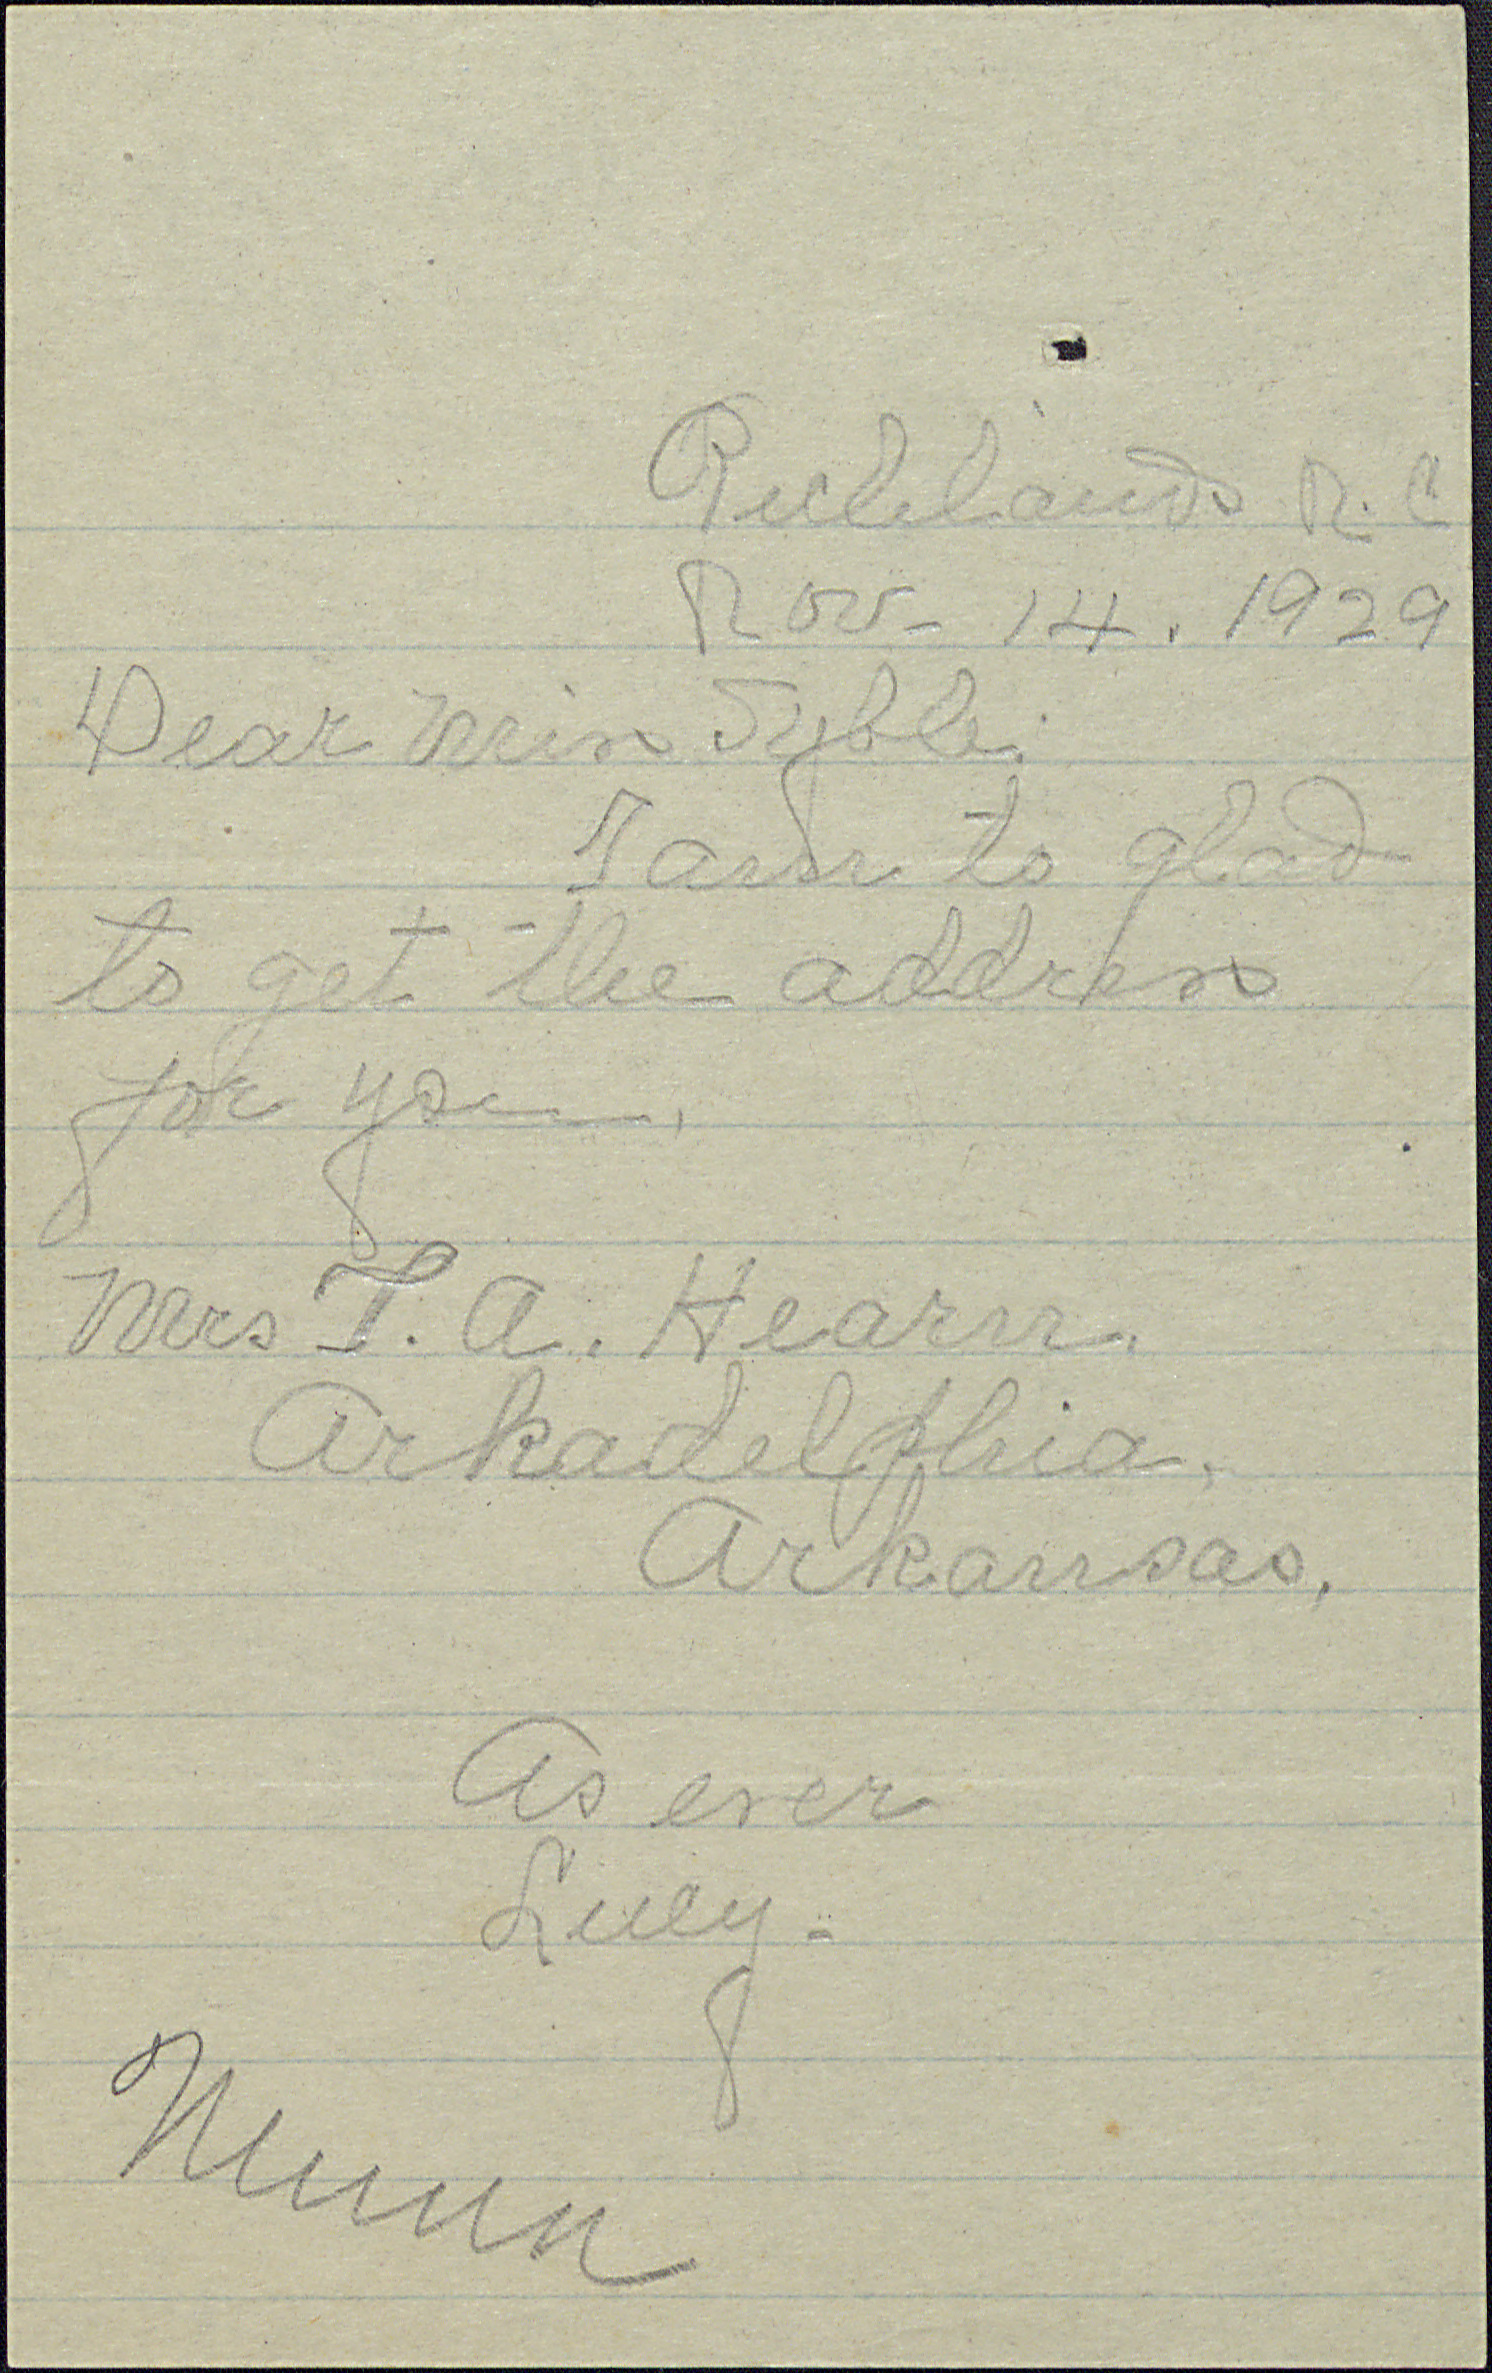 Richlands N. C
Nov- 14. 1929
Dear Miss Syble:
I am to glad
to get the address
for you.
Mrs T. A. Hearn.
Arkadelphia,
Arkansas,
As ever
Lucy-
Nunn